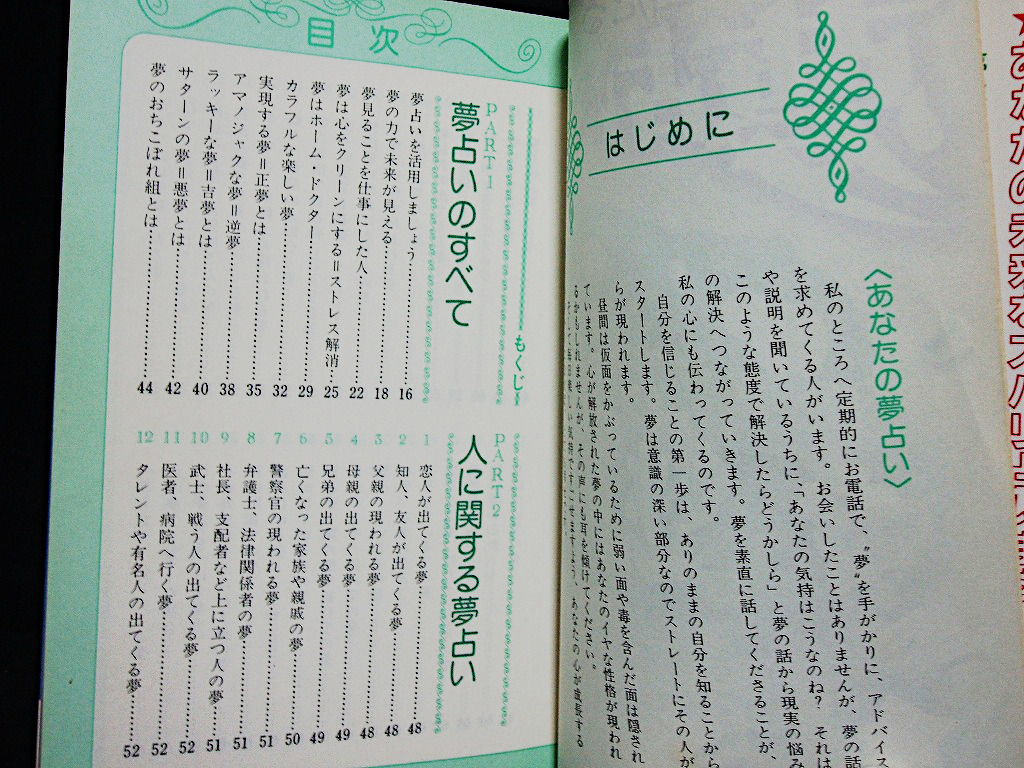 はじめに
〈あなたの夢占い〉
私のところへ定期的にお電話で、〝夢〟を手がかりに、アドバイス
を求めてくる人がいます。お会いしたことはありませんが、夢の話
や説明を聞いているうちに、「あなたの気持はこうなのね？ それは
このような態度で解決したらどうかしら」と夢の話から現実の悩み
の解決へつながっていきます。夢を素直に話してくださることが、
私の心にも伝わってくるのです。
自分を信じることの第一歩は、ありのままの自分を知ることから
スタートします。夢は意識の深い部分なのでストレートにその人が
らが現われます。
昼間は仮面をかぶっているために弱い面や毒を含んだ面は隠され
ています。心が解放された夢の中にはあなたのイヤな性格が現われ
るかもしれませんが、その声にも耳を傾けてください。
目次
もくじ
PART1
夢占いのすべて
夢占いを活用しましょう……16
夢の力で未来が見える……18
夢見ることを仕事にした人……22
夢は心をクリーンにする＝ストレス解消……25
夢はホーム・ドクター……29
カラフルな楽しい夢……32
実現する夢＝正夢とは……35
アマノジャクな夢＝逆夢……38
ラッキーな夢＝吉夢とは……40
サターンの夢＝悪夢とは……42
夢のおちこぼれ組とは……44
PART2
人に関する夢占い
1 恋人が出てくる夢……48
2 知人、友人が出てくる夢……48
3 父親の現われる夢……48
4 母親の出てくる夢……49
5 兄弟の出てくる夢……49
6 亡くなった家族や親戚の夢……50
7 警察官の現われる夢……51
8 弁護士、法律関係者の夢……51
9 社長、支配者など上に立つ人の夢……51
10 武士、戦う人の出てくる夢……52
11 医者、病院へ行く夢……52
12 タレントや有名人の出てくる夢……52